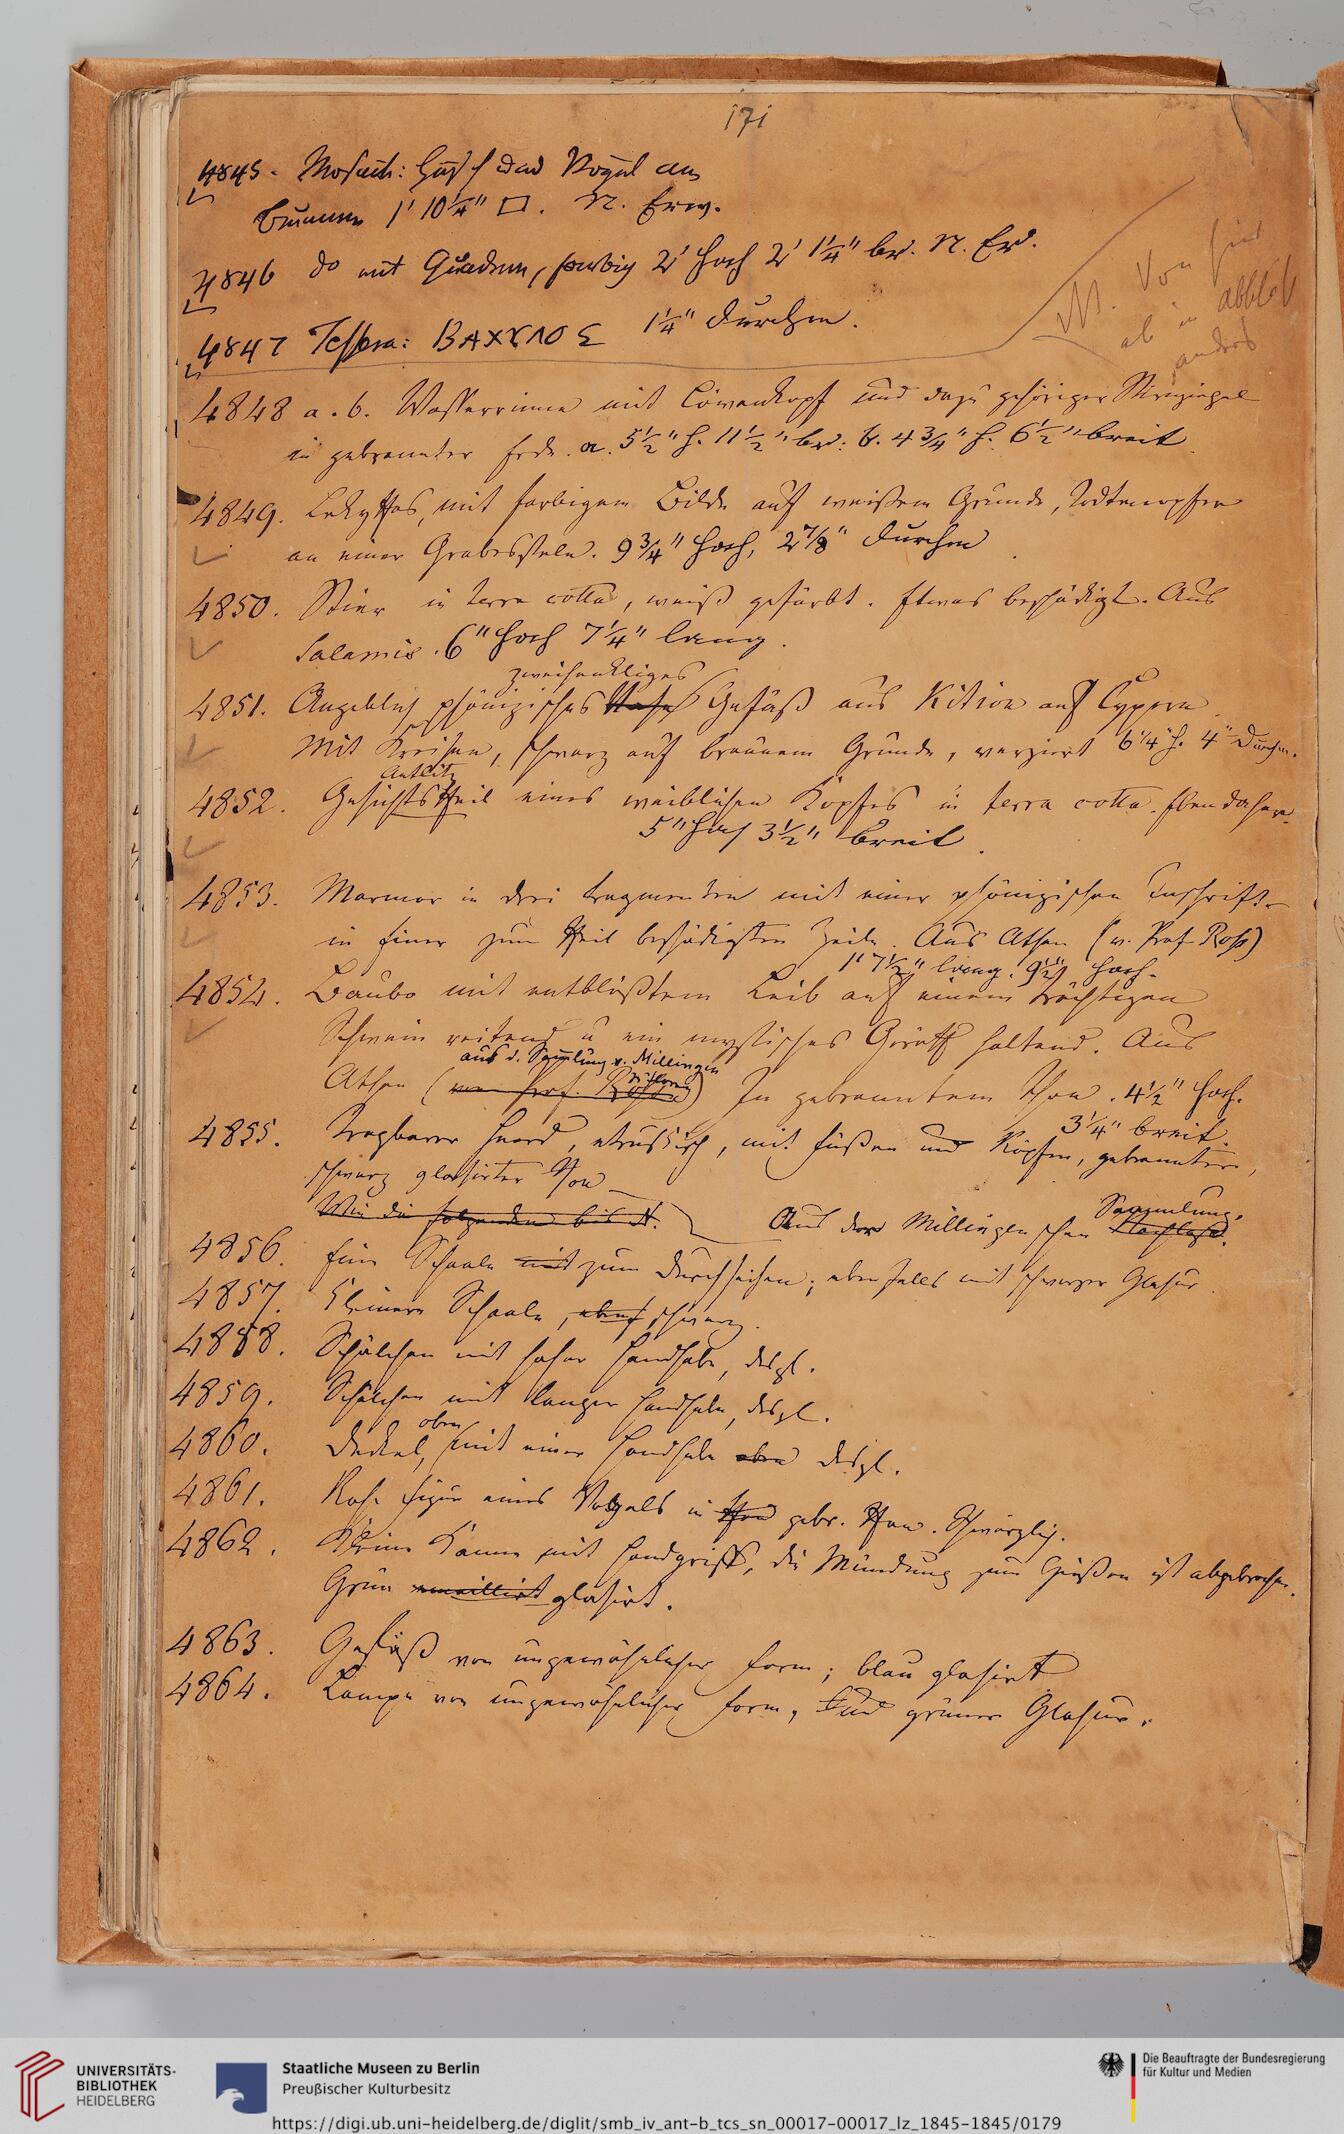 171
4845. Mosaik: Hirsch und Vogel am
Brunnen 1' 10¼" □. N. Erw.
4846 do mit Quadrum, farbig 2' hoch 2' 1¼" br. N. Erw.
4847 Tessera: BAXYΛOΣ 1¼" Durchm.
NB. Von hier
ab in
anders
4848 a. b. Wasserrinne mit Löwenkopf und dazu gehöriger Stirnziegel
in gebrannter Erde. a. 5½" h. 11½" br: b. 4¾" h. 6½" breit.
4849. Lekythos, mit farbigem Bilde auf weißem Grunde, Todtenopfer
an einer Grabesstele. 9¾" hoch, 2⅞" Durchm
4850. Stier in terra cotta, weiß gefärbt. Etwas beschädigt. Aus
Salamis. 6" hoch 7¼" lang.
zweihenkliges
4851. Angeblich phönizisches Vase Gefäß aus Kition auf Cypern
Mit Kreisen, schwarz auf braunem Grunde, verziert 6¼" h. 4" Durchm.
Antlitz
4852. Gesichtstheil eines weiblichen Kopfes in terra cotta. Ebendaher.
5" hoch 3½" breit.
4853. Marmor in drei Fragmenten mit einer phönizischen Inschrift
in einer zum Theil beschädigten Zeile. Aus Athen (v. Prof Ross)
1' 7½" lang. 9½" hoch.
4854. Baubo mit entblößtem Leib auf einem trächtigen
Schwein reitend u ein mystisches Geräth haltend. Aus
aus d. Sammlung v. Millingen
Athen (von Prof. Ross) In gebranntem Thon. 4½" hoch.
3¼" breit.
4855. Tragbarer Heerd, etruskisch, mit Füßen und Köpfen, gebrannter,
schwarz glasirter Thon
Wie die folgenden bis N. Aus der Millingenschen Nachlass.
Sammlung.
4856. Eine Schaale mit zum Durchseihen; ebenfalls mit schwarzer Glasur
4857. Kleinere Schaale, ebenf schwarz.
4858. Schälchen mit hoher Handhabe, desgl.
4859. Schälchen mit langer Handhabe, desgl.
oben
4860. Deckel, mit einer Handhabe oben desgl.
4861. Rohe Figur eines Vogels in Thon gebr. Thon. Schwärzlich.
4862. Kleine Kanne mit Handgriff, die Mündung zum Gießen ist abgebrochen.
Grün emaillirt glasirt.
4863. Gefäß von ungewöhnlicher Form; blau glasirt
4864. Lampe von ungewöhnlicher Form, und grüner Glasur.
UNIVERSITÄTS-
BIBLIOTHEK
HEIDELBERG
Staatliche Museen zu Berlin
Preußischer Kulturbesitz
Die Beauftragte der Bundesregierung
für Kultur und Medien
https://digi.ub.uni-heidelberg.de/diglit/smb_iv_ant-b_tcs_sn_00017-00017_lz_1845-1845/0179